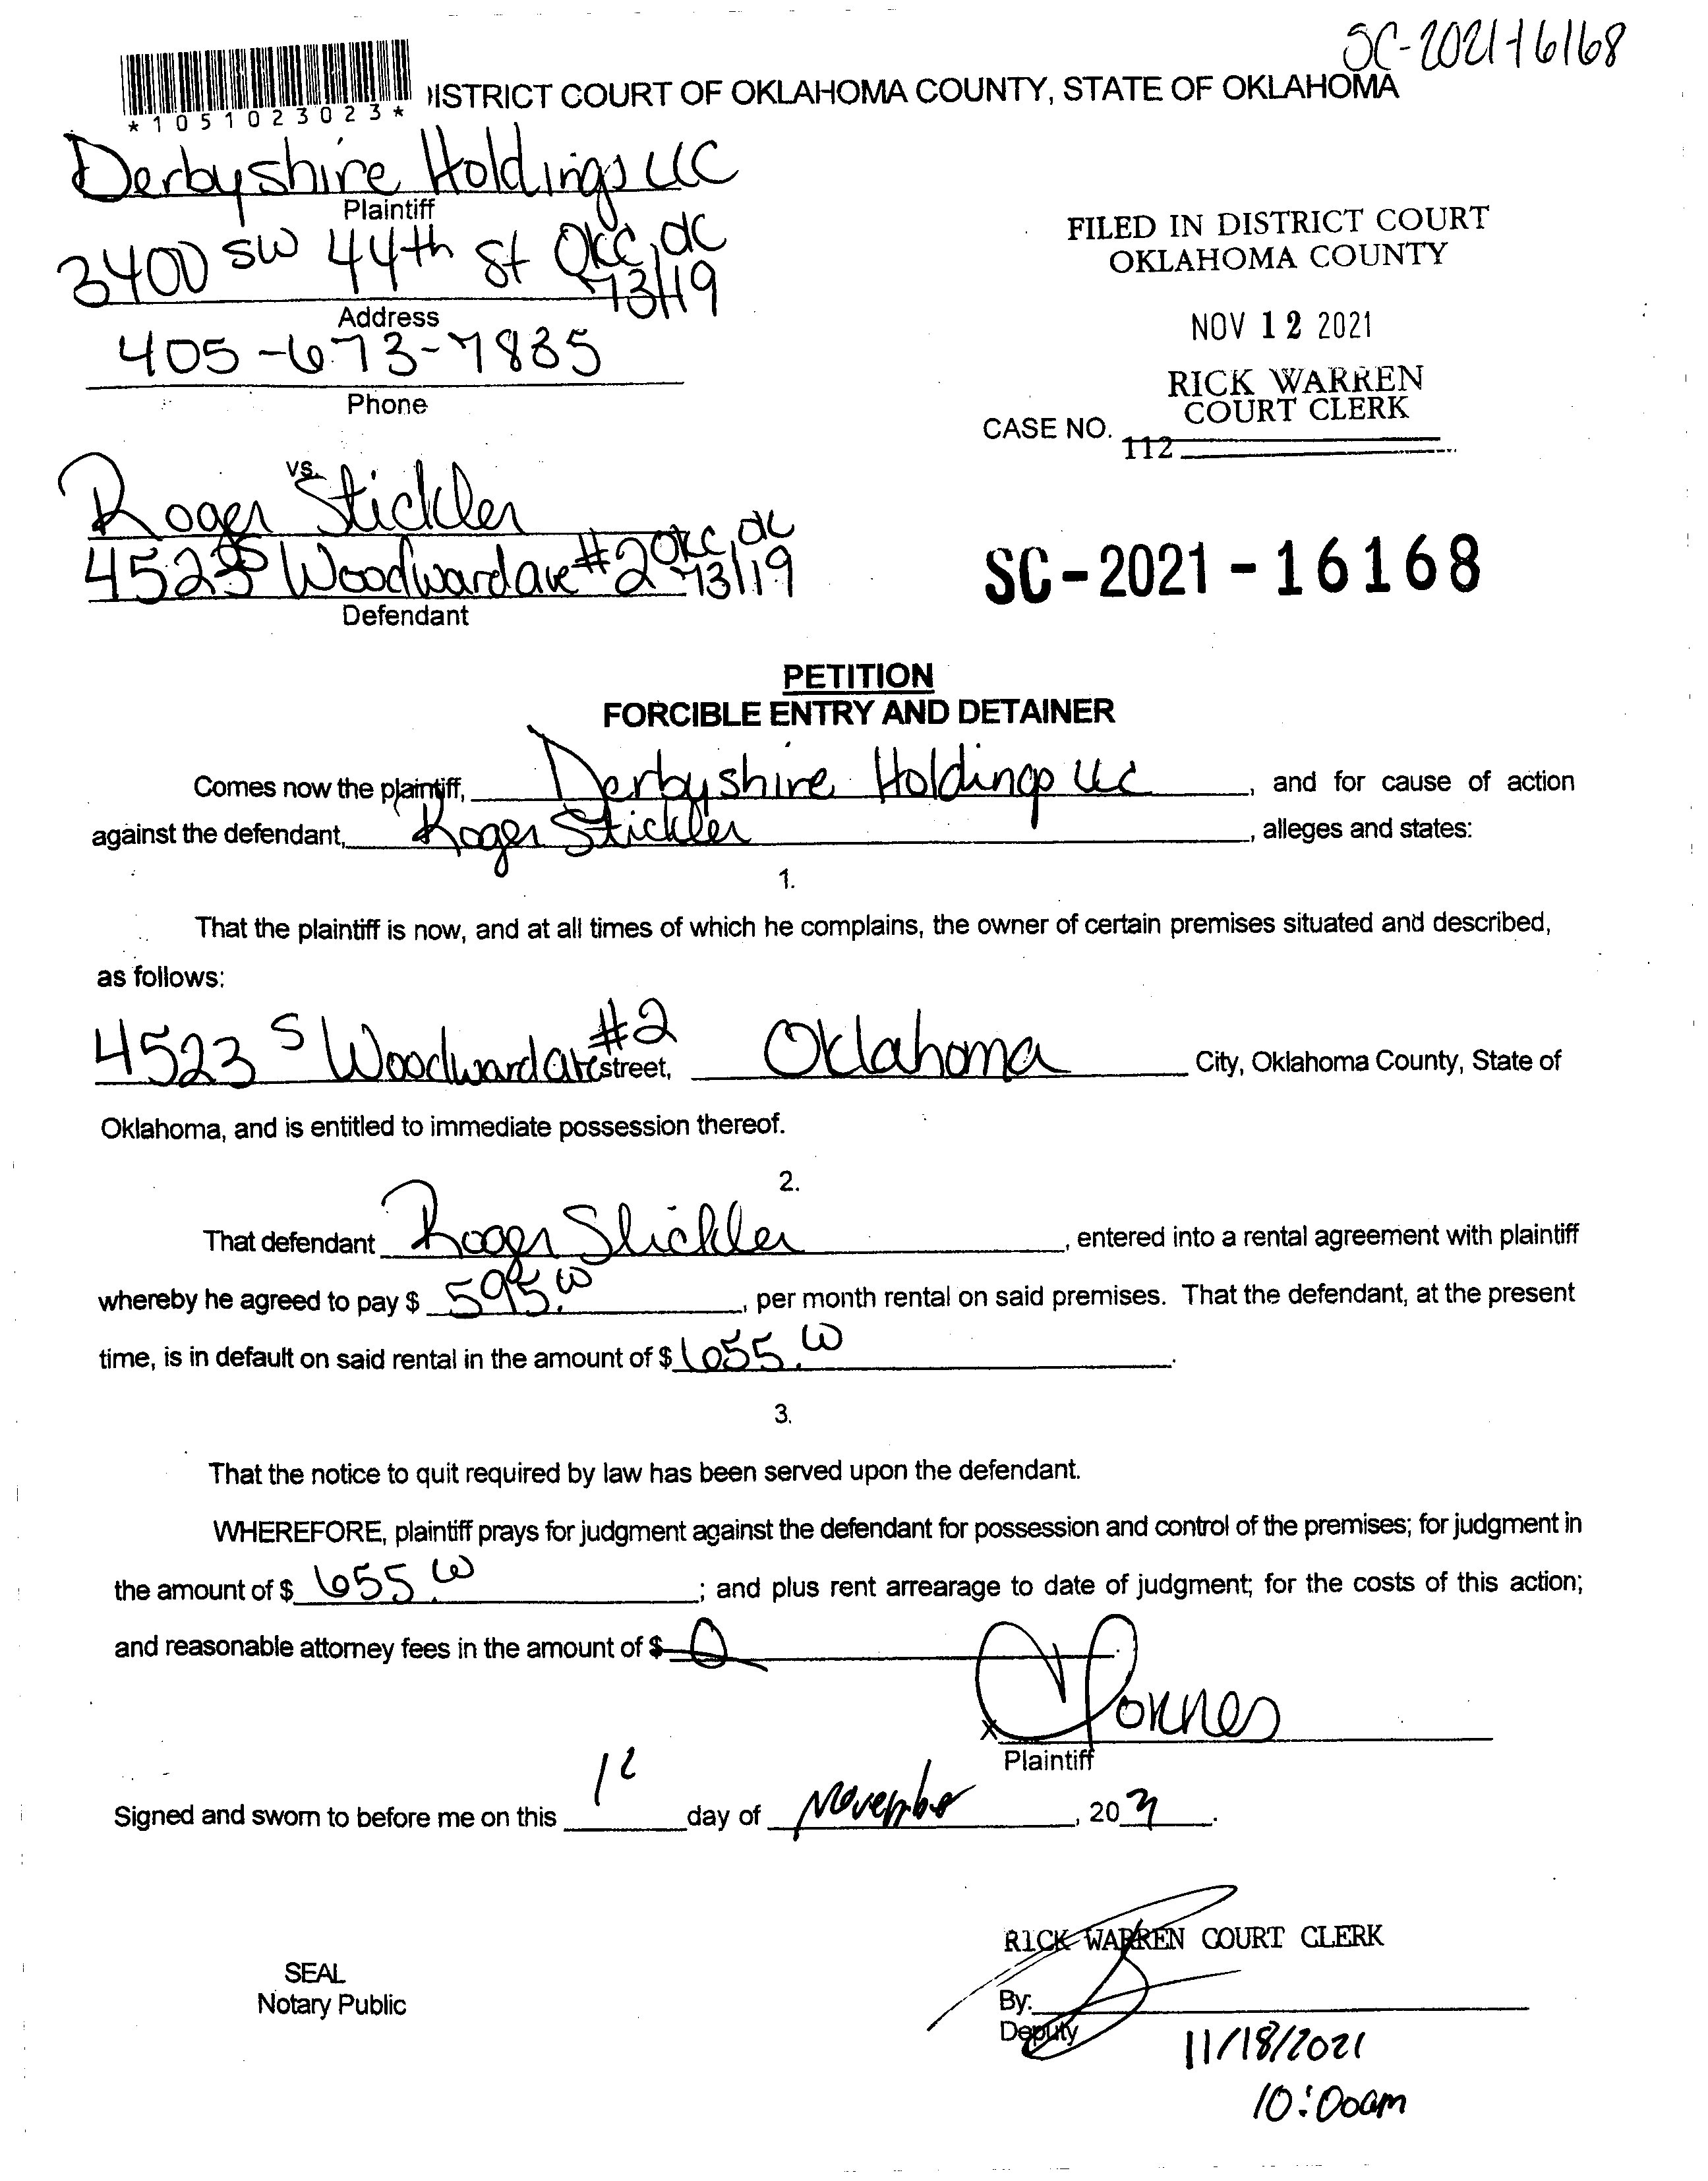 SC-2021-16168
*1051023023*
DISTRICT COURT OF OKLAHOMA COUNTY, STATE OF OKLAHOMA
Derbyshire Holdings LLC
Plaintiff
3400 SW 44th St OKC, OK
73119
Address
405-673-7835
Phone
FILED IN DISTRICT COURT
OKLAHOMA COUNTY
NOV 12 2021
RICK WARREN
COURT CLERK
CASE NO.
112
vs.
Roger Stickler
4523 S Woodward ave #2 OKC, OK
73119
Defendant
SC-2021-16168
PETITION
FORCIBLE ENTRY AND DETAINER
Comes now the plaintiff, Derbyshire Holdings LLC, and for cause of action
against the defendant, Roger Stickler, alleges and states:
1.
That the plaintiff is now, and at all times of which he complains, the owner of certain premises situated and described,
as follows:
4523 S Woodward ave #2 street, Oklahoma City, Oklahoma County, State of
Oklahoma, and is entitled to immediate possession thereof.
2.
That defendant Roger Stickler, entered into a rental agreement with plaintiff
whereby he agreed to pay $ 595.00, per month rental on said premises. That the defendant, at the present
time, is in default on said rental in the amount of $ 655.00.
3.
That the notice to quit required by law has been served upon the defendant.
WHEREFORE, plaintiff prays for judgment against the defendant for possession and control of the premises; for judgment in
the amount of $ 655.00; and plus rent arrearage to date of judgment; for the costs of this action;
and reasonable attorney fees in the amount of $ 0.
x
Plaintiff
Signed and sworn to before me on this 12 day of November, 2021.
RICK WARREN COURT CLERK
SEAL
Notary Public
By:
Deputy
11/18/2021
10:00am